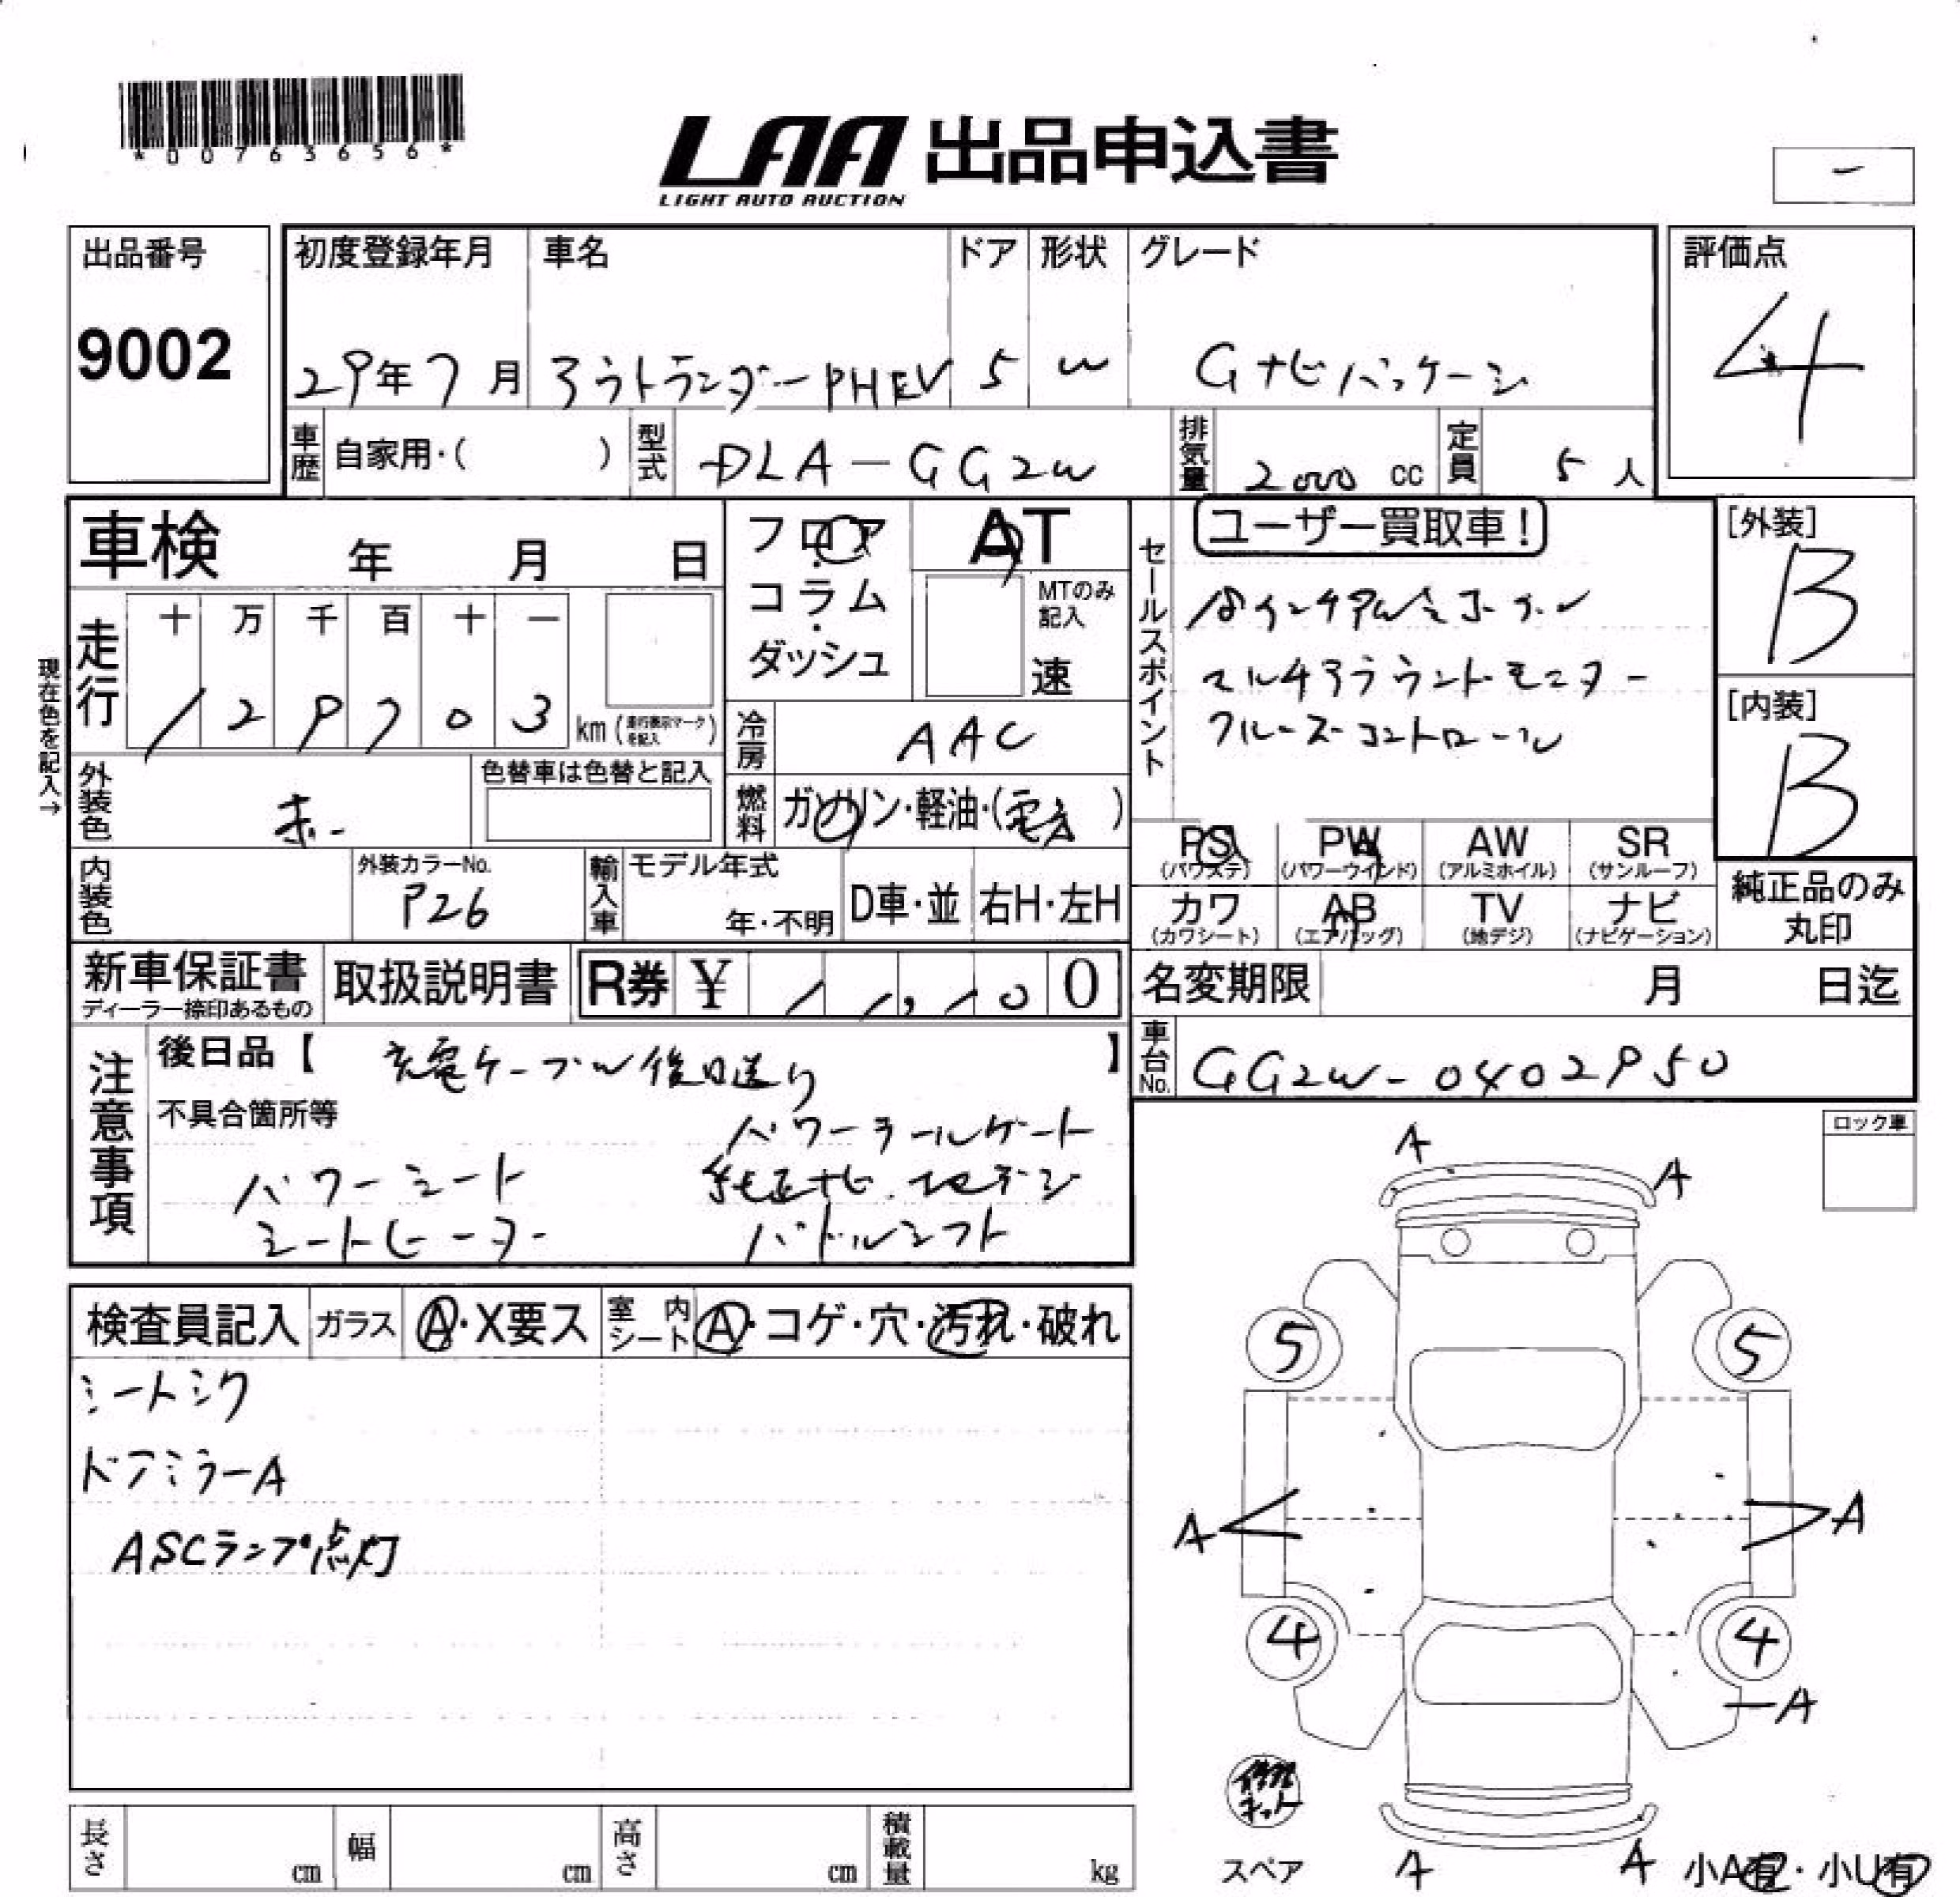 *00763656*
LAA 出品申込書
LIGHT AUTO AUCTION
-
出品番号
9002
初度登録年月
29年7月
車名
アウトランダーPHEV
ドア
5
形状
W
グレード
Gナビパッケージ
評価点
4
車歴 自家用・( )
型式 DLA-GG2W
排気量 2000 cc
定員 5 人
車検 年 月 日
フロア・コラム・ダッシュ
AT
MTのみ記入
速
セールスポイント
ユーザー買取車!
18インチアルミホイール
マルチアラウンドモニター
クルーズコントロール
[外装]
B
[内装]
B
現在色を記入→
走行
十 万 千 百 十 一
1 2 9 7 0 3 km (走行表示マークを記入)
冷房 AAC
燃料 ガソリン・軽油・(電気 )
外装色 赤
色替車は色替と記入
内装色
外装カラーNo.
P26
輸入車 モデル年式
年・不明
D車・並
右H・左H
PS (パワステ)
PW (パワーウインド)
AW (アルミホイル)
SR (サンルーフ)
カワ (カワシート)
AB (エアバッグ)
TV (地デジ)
ナビ (ナビゲーション)
純正品のみ丸印
新車保証書
ディーラー捺印あるもの
取扱説明書
R券 ¥ 1 1, 1 0 0
名変期限 月 日迄
車台No. GG2W-0402950
注意事項
後日品【 充電ケーブル後日送り 】
不具合箇所等
パワーテールゲート
パワーシート 純正ナビ.地デジ
シートヒーター パドルシフト
ロック車
検査員記入
ガラス A・X要ス
室内シート A・コゲ・穴・汚れ・破れ
シートシワ
ドアミラーA
ASCランプ点灯
A
A
5
5
A
A
4
4
A
修理キット
スペア
A
A
小A有・小U有
長さ cm
幅 cm
高さ cm
積載量 kg